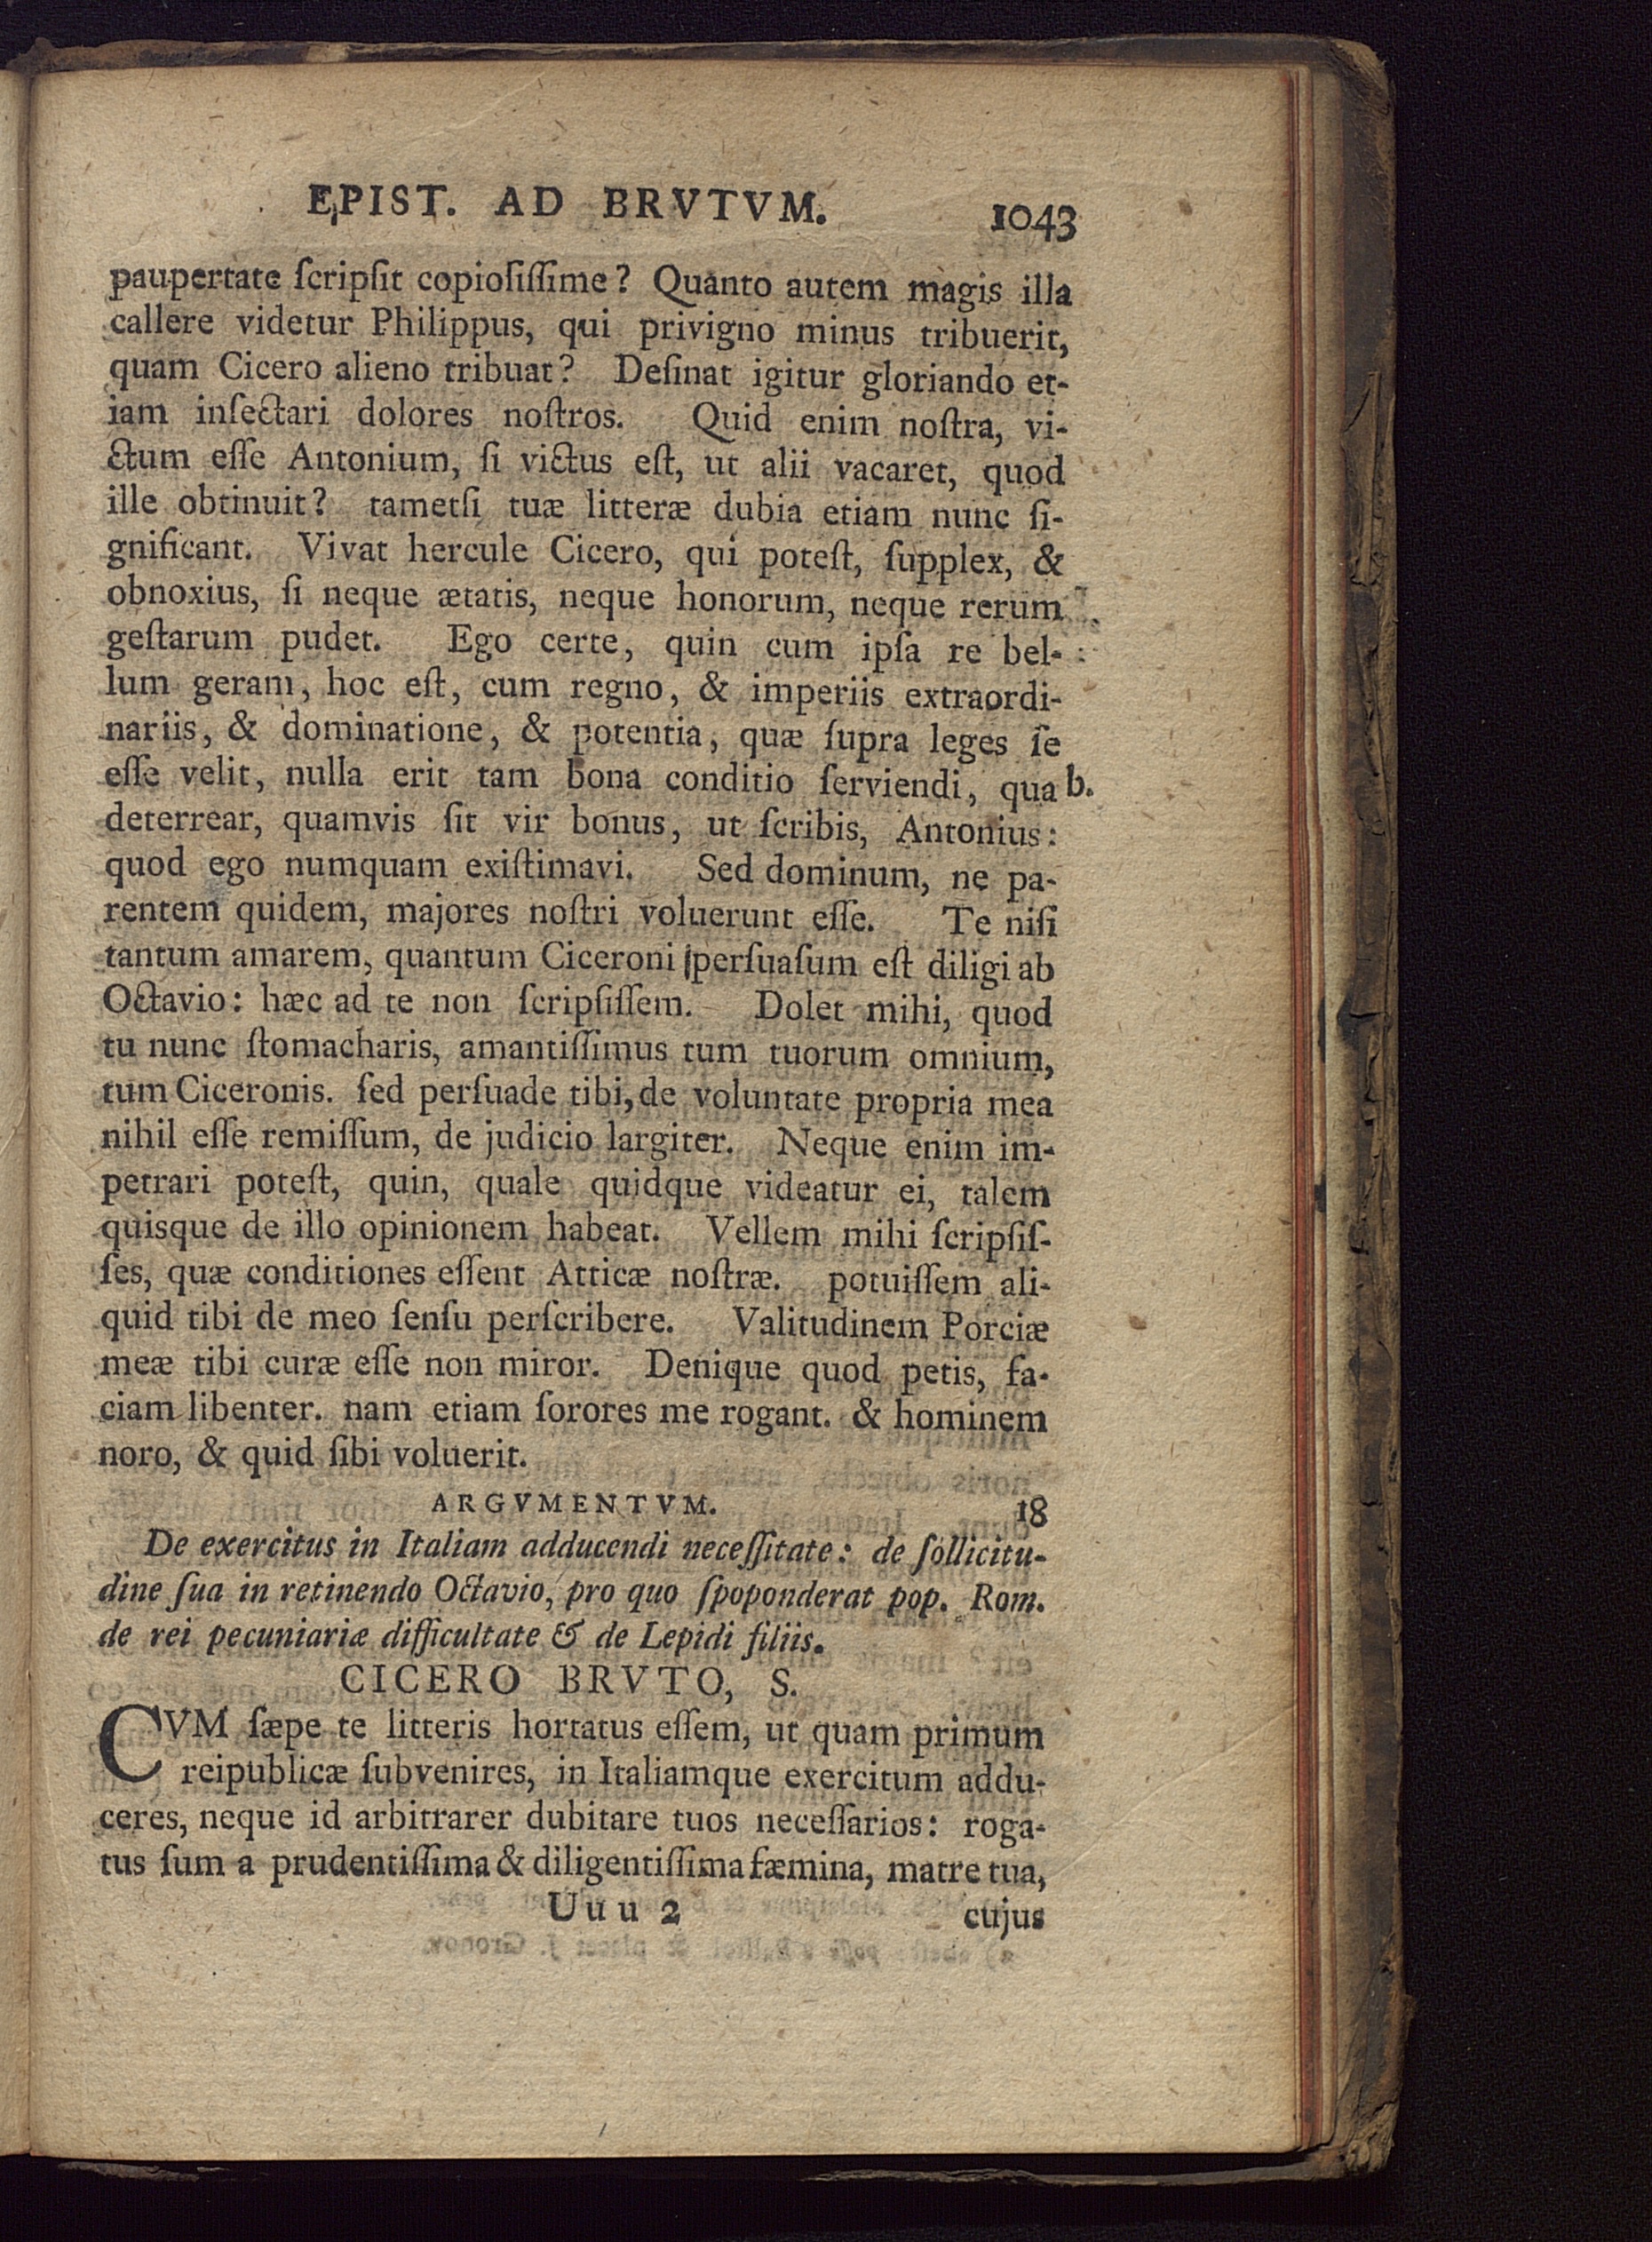 EPIST. AD BRVTVM. 1043
paupertate ſcripſit copioſiſſime? Quanto autem magis illa
callere videtur Philippus, qui privigno minus tribuerit,
quam Cicero alieno tribuat? Deſinat igitur gloriando et-
iam inſectari dolores noſtros. Quid enim noſtra, vi-
ctum eſſe Antonium, ſi victus eſt, ut alii vacaret, quod
ille obtinuit? tametſi tuæ litteræ dubia etiam nunc ſi-
gnificant. Vivat hercule Cicero, qui poteſt, ſupplex, &
obnoxius, ſi neque ætatis, neque honorum, neque rerum
geſtarum pudet. Ego certe, quin cum ipſa re bel-
lum geram, hoc eſt, cum regno, & imperiis extraordi-
nariis, & dominatione, & potentia, quæ ſupra leges ſe
eſſe velit, nulla erit tam bona conditio ſerviendi, qua b.
deterrear, quamvis ſit vir bonus, ut ſcribis, Antonius:
quod ego numquam exiſtimavi. Sed dominum, ne pa-
rentem quidem, majores noſtri voluerunt eſſe. Te niſi
tantum amarem, quantum Ciceroni perſuaſum eſt diligi ab
Octavio: hæc ad te non ſcripſiſſem. Dolet mihi, quod
tu nunc ſtomacharis, amantiſſimus tum tuorum omnium,
tum Ciceronis. ſed perſuade tibi, de voluntate propria mea
nihil eſſe remiſſum, de judicio largiter. Neque enim im-
petrari poteſt, quin, quale quidque videatur ei, talem
quisque de illo opinionem habeat. Vellem mihi ſcripſiſ-
ſes, quæ conditiones eſſent Atticæ noſtræ. potuiſſem ali-
quid tibi de meo ſenſu perſcribere. Valitudinem Porciæ
meæ tibi curæ eſſe non miror. Denique quod petis, fa-
ciam libenter. nam etiam ſorores me rogant. & hominem
noro, & quid ſibi voluerit.
ARGVMENTVM. 18
De exercitus in Italiam adducendi neceſſitate: de ſollicitu-
dine ſua in retinendo Octavio, pro quo ſpoponderat pop. Rom.
de rei pecuniariæ difficultate & de Lepidi filiis.
CICERO BRVTO, S.
CVM ſæpe te litteris hortatus eſſem, ut quam primum
reipublicæ ſubvenires, in Italiamque exercitum addu-
ceres, neque id arbitrarer dubitare tuos neceſſarios: roga-
tus ſum a prudentiſſima & diligentiſſima fæmina, matre tua,
Uuu 2 cujus